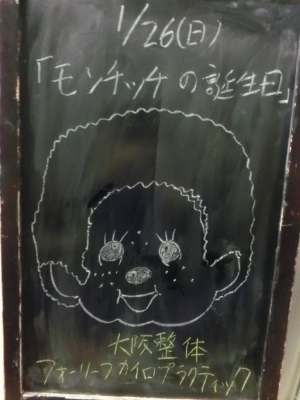 1/26(日)
「モンチッチの誕生日」
大阪整体
フォーリーフカイロプラクティック